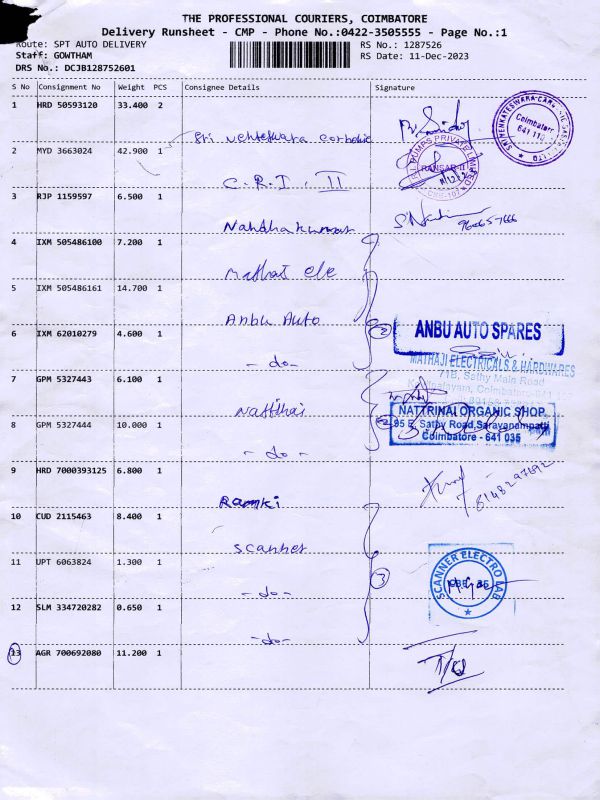 THE PROFESSIONAL COURIERS, COIMBATORE
Delivery Runsheet - CMP - Phone No.:0422-3505555 - Page No.:1
Route: SPT AUTO DELIVERY RS No.: 1287526
Staff: GOWTHAM RS Date: 11-Dec-2023
DRS No.: DCJB128752601
S No Consignment No Weight PCS Consignee Details Signature
1 HRD 50593120 33.400 2
Sri Coimbatore 641 110
2 MYD 3663024 42.900 1
C.R.I. II
3 RJP 1159997 6.500 1
Nandhakumar
4 IXM 505486100 7.200 1
Mathaji ele
5 IXM 505486161 14.700 1
Anbu Auto
6 IXM 62010279 4.600 1 2 ANBU AUTO SPARES
- do - MATHAJI ELECTRICALS & HARDWARES
71B, Sathy Main Road
7 GPM 5327443 6.100 1
NATTRINAI ORGANIC SHOP
8 GPM 5327444 10.000 1 95 E, Sathy Road, Saravanampatti
Coimbatore - 641 035
- do -
9 HRD 7000393125 6.800 1
8148297692
Ramki
10 CUD 2115463 8.400 1
Scanner
11 UPT 6063824 1.300 1
SCANNER ELECTRO LAB
- do - 3 CBE - 35
12 SLM 334720282 0.650 1
- do -
13 AGR 700692080 11.200 1